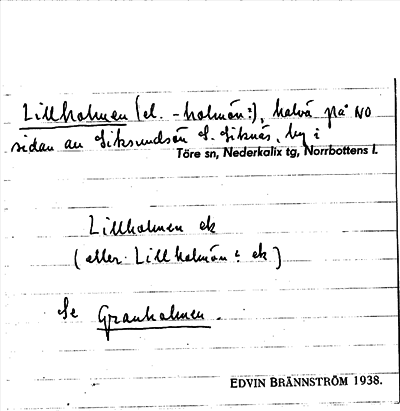 Lillholmen (el. -holmön?), halvö på NO
sidan av Siksundsön S. Siknäs, by i
Töre sn, Nederkalix tg, Norrbottens l.
Lillholmen ek
(eller Lillholmön? ek)
Se Granholmen.
EDVIN BRÄNNSTRÖM 1938.